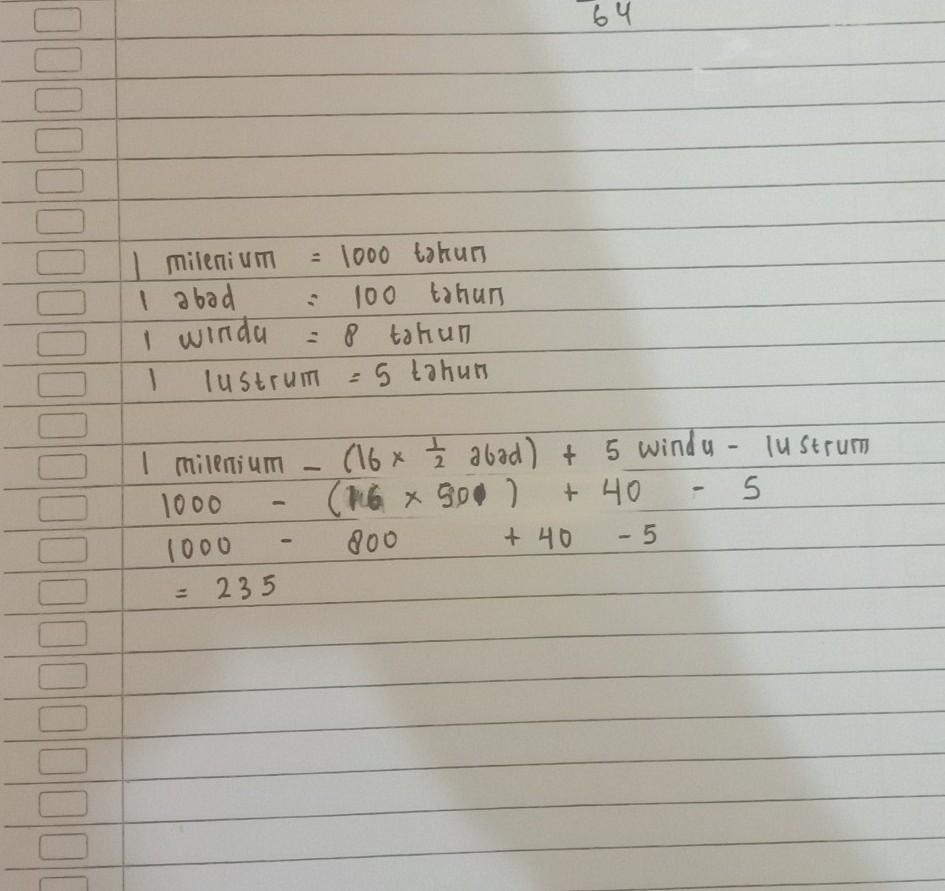 64
1 milenium = 1000 tahun
1 abad = 100 tahun
1 windu = 8 tahun
1 lustrum = 5 tahun
1 milenium - (16 × 1/2 abad) + 5 windu - lustrum
1000 - (16 × 50) + 40 - 5
1000 - 800 + 40 - 5
= 235